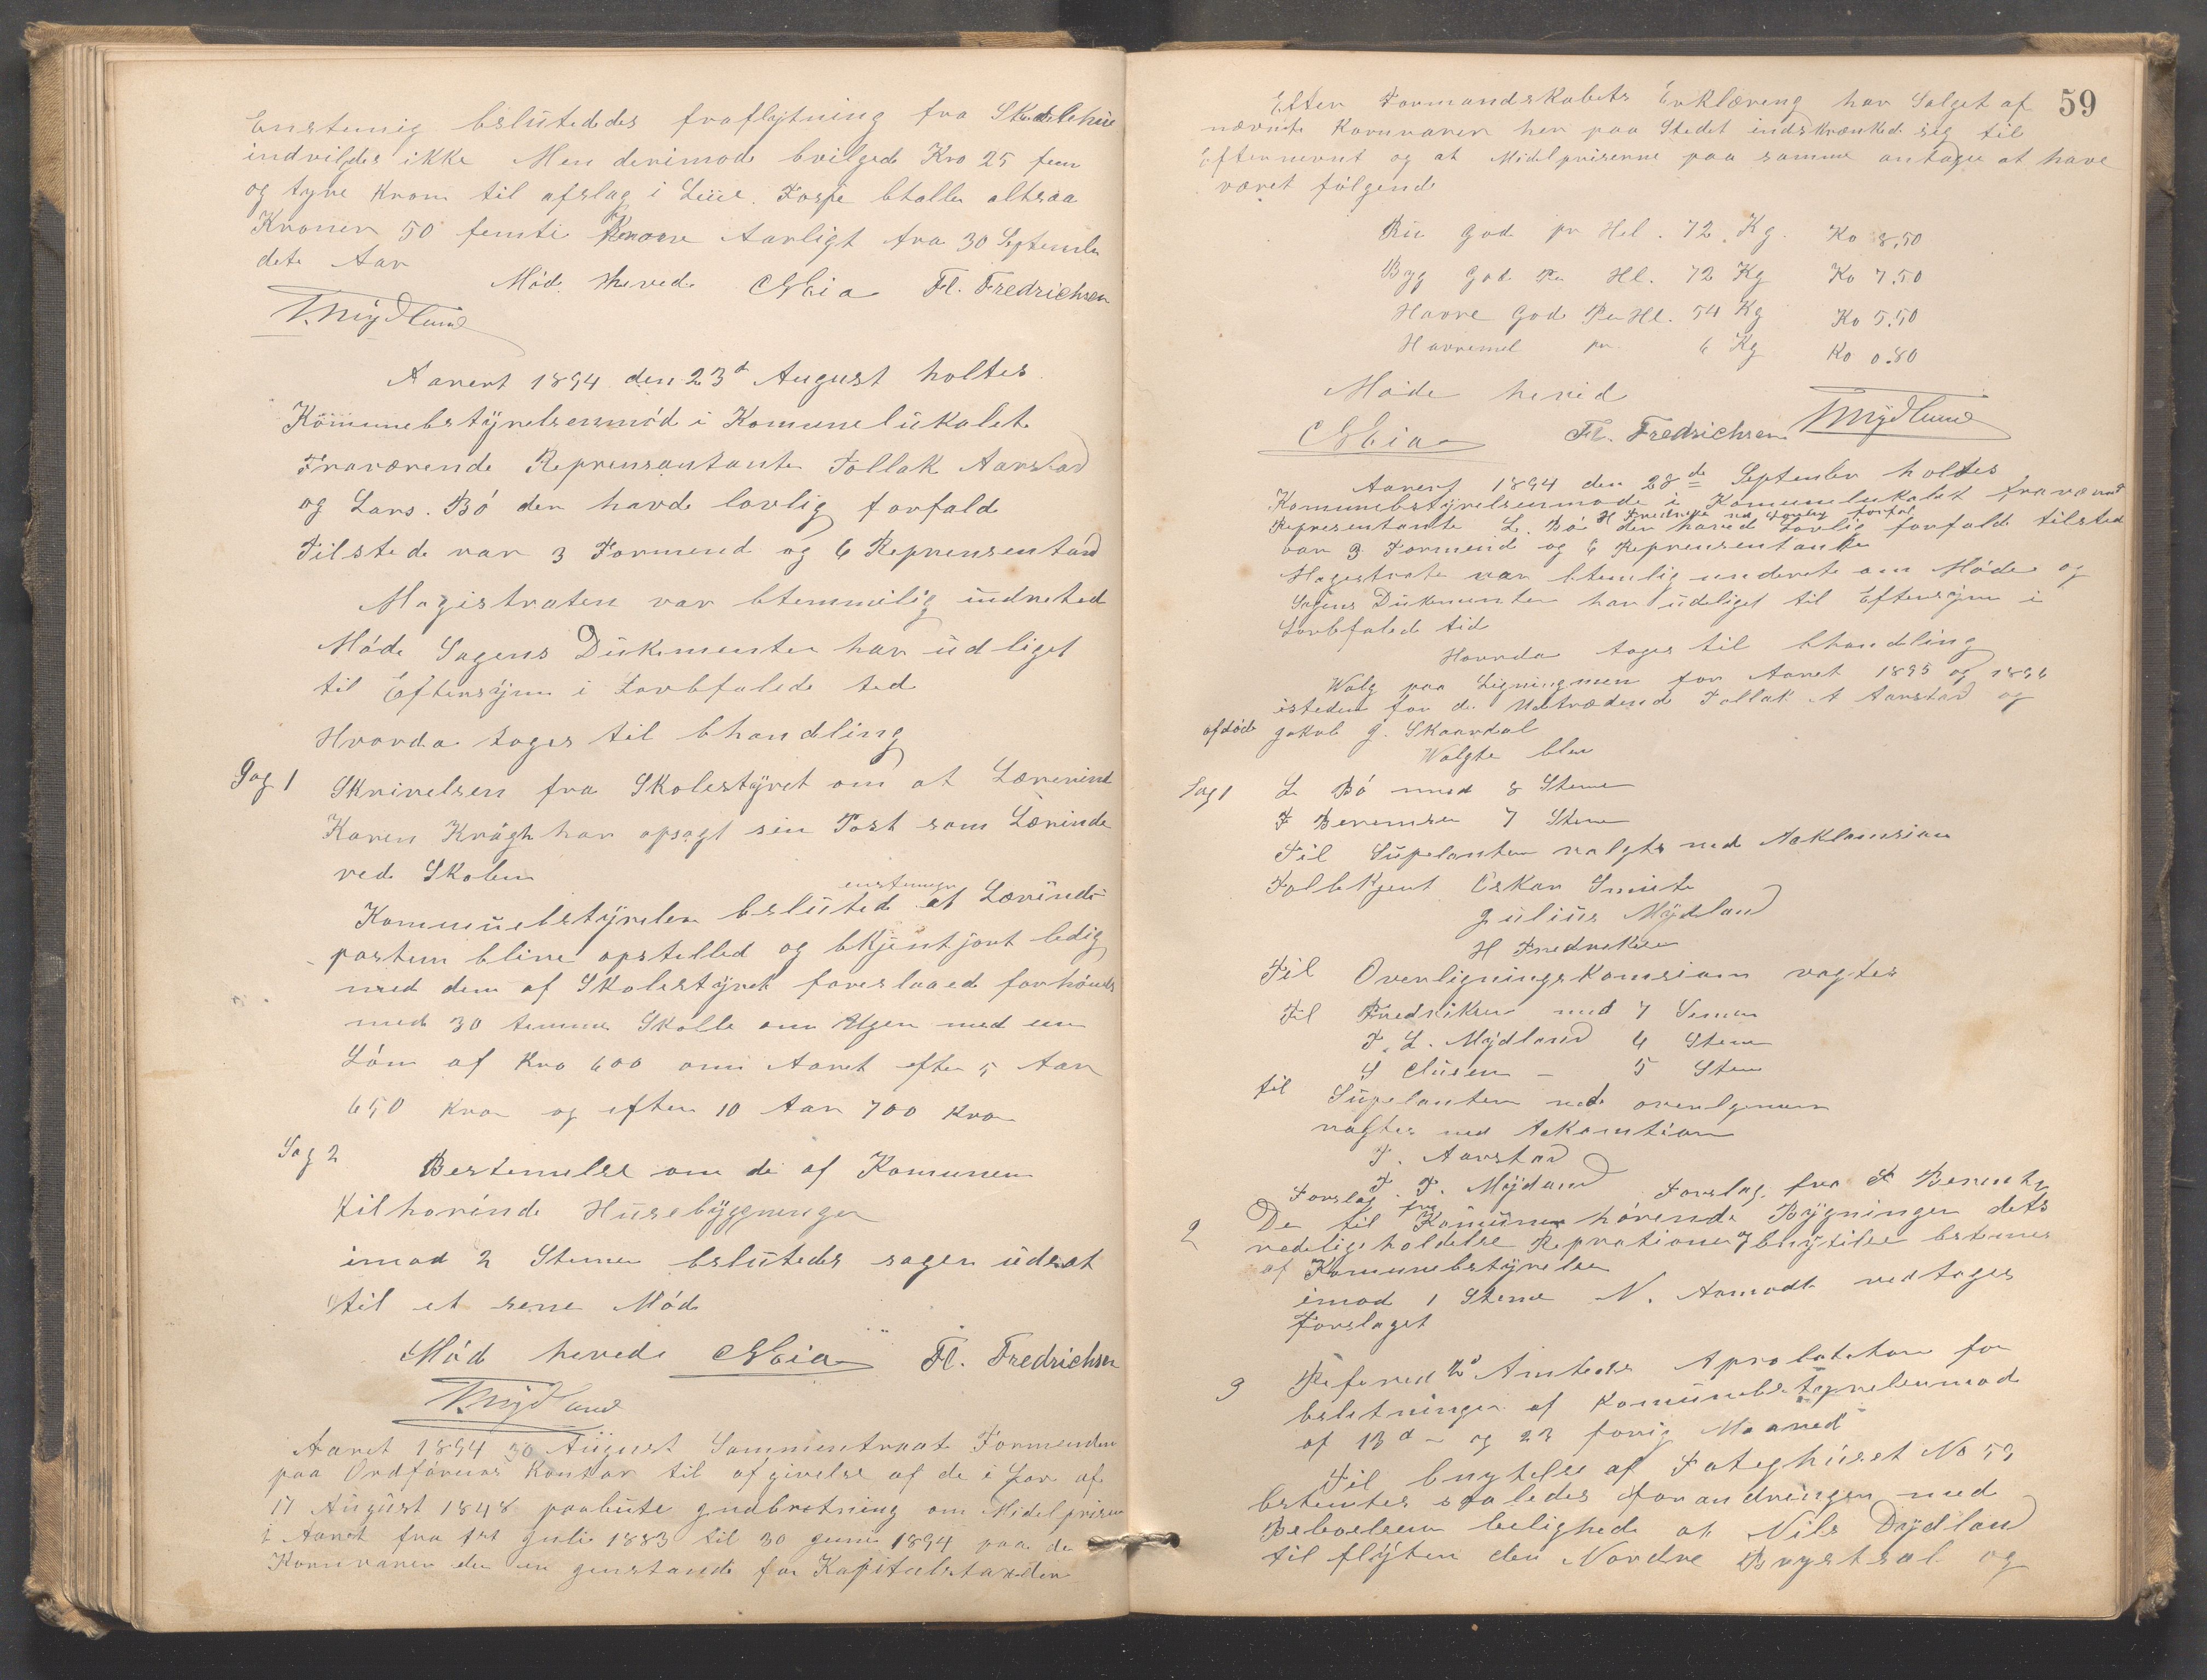 Enstemig beslütededes fraflÿtning fra
indvilges ikke Men derimode bvilgede Kro 25 fem
og tyve Kron til afslag i btalle altsaa
Kroner 50 femti Krone Aarligt fra 30 Septembe
dete Aar
Móde hevede Fl. Fredrichsen
TMÿdlund
Aaret 1894 den 23d August holtes
Kommunebstÿrelsesmód i Komunelükalet
Fraværende Reprensantante Tollak Aarstad
og Lars. Bó der havde lovlig forfald
Tilstede var 3 Formend og 6 Reprensentand
Magistraten var btemmelig üdreted
Móde Sagens Dükementer har üdliget
til Eftersÿnn i Lovbfalede ted
Hvorda toges til bhandling
Sag 1
Skrivelsen fra Skolestÿret om at Lærerind
Karen Krågh har opsagt sin Post som Lærinde
ved Skolen
enstemige
Kommunebstÿrelen bslüted at Lærinde
posten blive opstelled og bkjentjort ledig
med dem af Skolestÿret foreslaaed forhónds
med 30 temme Skolle om Ugen med en
Lón af Kro 600 om Aaret efter 5 Aar
650 Kro og efter 10 Aar 700 Kro
Sag 2
Bestemelse om de af Komunen
tilhorinde Hüsebÿggninger
imod 2 Stemer bslütedes sagen üdsat
til et sene Mód
Mód hevede Fl. Fredrichsen
TMÿdlund
Aaret 1894 30 Aügust Sammentraat Formenden
paa Ordfórerens Kontor til afgivelse af de i Lov af
17 Aügüst 1848 paabüte gudbretning om Midelprisen
i Aaret fra 1st Juli 1883 til 30 Juni 1894 paa de
Kornvarer der er gienstande for Kapitalstaxsten
59
Efter Formandskabets Erklæreng har Salget af
nævnte Kornvarer her paa Stedet indskrænked sig til
Efternevnt og at Midelpriserne paa samme antages at have
været fólgende
Rüe god pr Hel. 72 Kg. Ko 8,50
Byg god Per Hl. 72 Kg Ko 7.50
Havre god Per Hl. 54 Kg Ko 5.50
Havremel pr. 6 Kg Ko 0.80
Móde hevid
Fl. Fredrichsen TMÿdlund
Aaret 1894 den 28de September holdtes
Komunebstÿrelsenmóde i Komunelukalet fraværend
Representante L. Bó der haved Lovlig forfald tilsted
var 3 Formend og 6 Reprensentante
Magestrate var btemlig underete om Móde og
Sagens Dükumenter har üdeliget til Eftersÿnn i
Lovbfalede tid
Hvorda toges til bhandling
Walg paa Ligningmen for Aaret 1895 og 1896
isteden for de Uttrædend Tollak A Aarstad og
afdóde Jakob J. Skaardal
Walgte blev
Sag 1
L Bó med 8 Steme
F Berensen 7 Steme
Til Süpelanter valgts ved Acklamsion
Folbkjent Oskar Smiete
Jülius Mÿdland
H Fredreksen
Til Overligningskomsion vagtes
Til Fredriksen med 7 Semer
T. L. Mÿdland 6 Steme
S Clüsen – 5 Steme
til Süpelanter ved
vagtes ved
T. Aarstad
T. T. Mÿdland
Forslag fra F Berentsen
2
De til Komünen hórende Bÿgninger dets
vedeligeholdelse Reprationer og bnÿtilse bstemes
af Komunebstÿrelsen
imod 1 Steme N. Aamodt vedtages
Forslaget
3
Refered Amtets for
bslutninger af Komünebstÿrelsenmóde
af 13d – og 23 forig Maaned
Til bnytelse af Fatighüset No 53
bstemtes saaledes forandringen med
Beboelsen belighede at Nils Dÿdland
til flÿten den Nordre Brystsal og